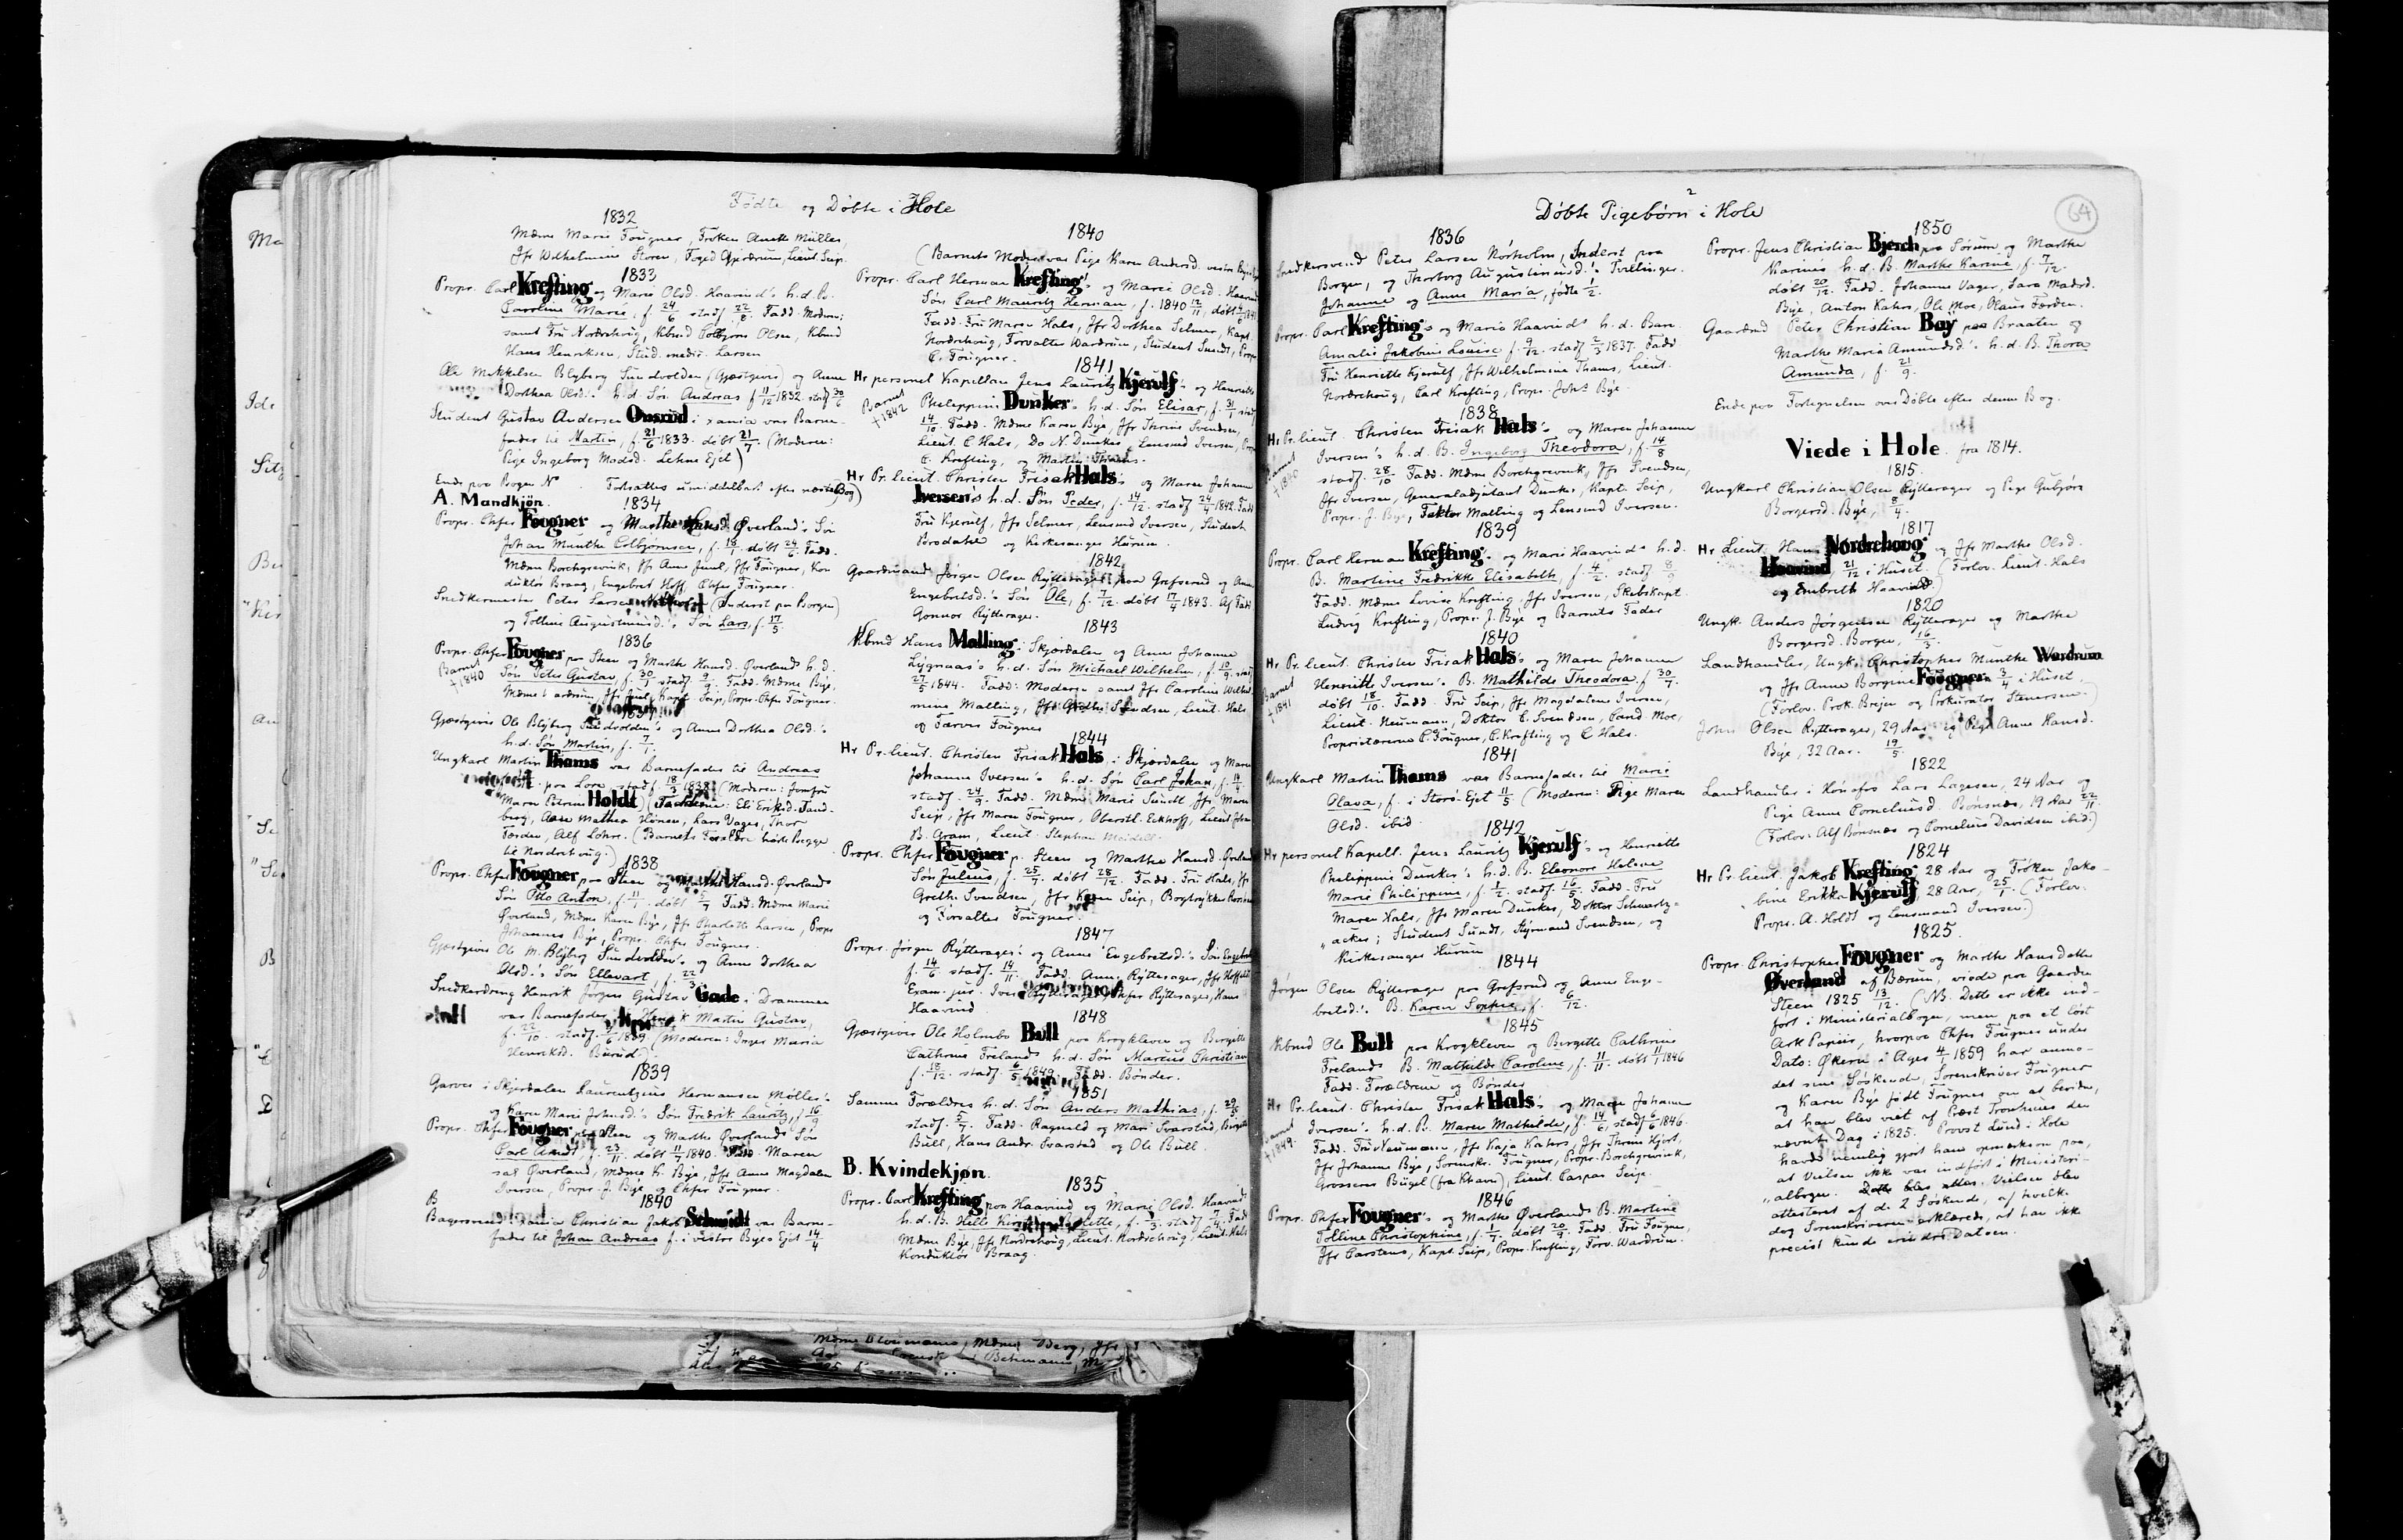 Fødte og Døbte i Hole
1832
Mdme Marie Fougner, Frøken Anette Müller,
Jfr Wilhelmine Storen, Foged Gjerdrum, Lieut. Seip.
1833
Propr. Carl Krefting og Marie Olsd. Haavind's h.d. B.
Caroline Marie, f. 24/6 stadf. 22/8. Fadd. Moderen;
samt Fru Nordrehoug, Kbmd Colbjørn Olsen, Kbmd
Hans Henriksen, Stud. medic. Larsen
Ole Mikkelsen Blyberg Sundvolden (Gjæstgiver) og Anne
Dorthea Olsd.'s h.d. Søn Andreas f. 11/12 1832. stadf. 30/6
Student Gustav Andersen Omsrud i xania var Barne-
fader til Martin, f. 21/6 1833. døbt 21/7. (Moderen:
Pige Ingeborg Madsd. Lehne Ejet)
Ende paa Bogen No . Fortsættes umiddelbart efter næste Bog)
A. Mandkjøn.
1834
Propr. Chfer Fougner og Marthe Hansd. Øverland's Søn
Johan Munthe Colbjørnsen, f. 18/1. døbt 24/6. Fadd.
Mdme Borchgrevink, Jfr Anne Juul, Jfr Fougner, Kon
duktør Braag, Engebret Hoff, Chfer Fougner.
Snedkermester Peter Larsen (Inderst paa Borgen)
og Tolline Augustinusd.'s Søn Lars, f. 17/5.
1836
Propr. Chfer Fougner paa Steen og Marthe Hansd. Øverlands h.d.
Barnet † 1840
Søn Peter Gustav, f. 30/1 stadf. 9/9. Fadd. Mdme Bye,
Mdme Wardrum, Jfr Juul, Kapt. Seip, Propr. Chfer Fougner.
1837
Gjæstgiver Ole Blyberg Sundvolden's og Anne Dorthea Olsd.'s
h.d. Søn Martin, f. 7/1.
Ungkarl Martin Thams var Barnefader til Andreas
paa Lore, stadf. 18/3 1838 (Moderen: Jomfru
Maren Petrine Holdt) (Fadderne: Eli Eriksd. Fand-
berg, Aase Mathea Hønen, Lars Vager, Thor
Færden, Alf Lohre. (Barnets Forældre hørte Begge
til Nordrehoug.)
1838
Propr. Chfer Fougner paa Steen og Marthe Hansd. Øverlands
Søn Otto Anton, f. 11/1. døbt 5/7. Fadd. Mdme Marie
Øverland, Mdme Karen Bye, Jfr Charlotte Larsen, Propr.
Johannes Bye, Propr. Chfer Fougner.
Gjæstgiver Ole M. Blyberg Sundvolden's og Anne Dorthea
Olsd.'s Søn Ellevart, f. 22/3.
Snedkerdreng Henrik Jørgen Gustav Gade i Drammen
var Barnefader til Henrik Martin Gustav,
f. 22/10. stadf. 1/6 1839 (Moderen: Inger Maria
Henriksd. Burud).
1839
Garver i Skjerdalen Laurentius Hermansen Møller's
og Karen Marie Johnsd.'s Søn Fredrik Lauritz, f. 16/9
Propr. Chfer Fougner paa Steen og Marthe Øverlands Søn
Carl Arndt, f. 23/11. døbt 11/7 1840. Fadd. Maren
sal. Øverland, Mdme K. Bye, Jfr Anne Magdalen
Iversen, Propr. J. Bye og Chfer Fougner.
1840
Bagersvend Xania Christian Jakob Schmidt var Barne-
fader til Johan Andreas f. i vestre Byes Ejet 14/4
1840
(Barnets Moder var Pige Karen Andersd. vestre
Propr. Carl Herman Krefting's og Marie Olsd. Haavind
Søn Carl Mauritz Herman, f. 1840 12/11, døbt
Fadd. Fru Maren Hals, Jfr Dorthea Selmer, Kapt.
Nordrehoug, Forvalter Wardrum, Student Sundt, Propr
C. Fougner.
1841
Hr personel Kapellan Jens Lauritz Kjerulf's og Henriette
Barnet † 1842
Philippine Dunker's h.d. Søn Elisar, f. 31/1 stadf
14/10. Fadd. Mdme Karen Bye, Jfr Thrine Svendsen,
Lieut. C. Hals, Do N. Dunker, Lensmd Iversen, Propr
C. Krefting, og Martin Thams.
Hr Pr. lieut. Christen Frisak Hals og Maren Johanne
Iversen's h.d. Søn Peder, f. 14/12. stadf 24/4 1842. Fadd
Fru Kjerulf, Jfr Selmer, Lensmd Iversen, Student
Brodahl og Kirkesanger Hurum.
1842
Gaardmand Jørgen Olsen Rytterager paa Grefsrud og Anne
Engebretsd.'s Søn Ole, f. 7/12. døbt 17/4 1843. Af Fadd
Gunnor Rytterager.
1843
Kbmd Hans Malling i Skjerdalen og Anne Johanne
Lygnaas's h.d. Søn Michael Wilhelm, f. 10/9. stadf
27/5 1844. Fadd: Moderen samt Jfr Caroline Wilhel
mine Malling, Jfr Grethe Svendsen, Lieut. Hals
og Farver Fougner
1844
Hr Pr. lieut. Christen Frisak Hals i Skjerdalen og Maren
Johanne Iversen's h.d. Søn Carl Johan, f.
stadf. 24/9. Fadd. Mdme Marie Sundt, Jfr Maren
Seip, Jfr Maren Fougner, Oberstl. Eckhoff, Lieut. Johan
B. Aram, Lieut. Stephan Meidell.
Propr. Chfer Fougner p. Steen og Marthe Hansd. Øverland
Søn Julius, f. 25/7. døbt 28/12. Fadd. Fru Hals, Jfr
Grethe Svendsen, Jfr Karen Seip, Bogtrykker
og Forvalter Fougner.
1847
Propr. Jørgen Rytterager's og Anne Engebretsd.'s Søn Engebret
f. 14/6 stadf. 14/11. Fadd. Anne Rytterager, Jfr
Exam. jur. Iver Rytterager, Chfer Rytterager, Hans
Haavind.
1848
Gjæstgiver Ole Holmbo Bull paa Krogkleven og Birgitte
Cathrine Frelands h.d. Søn Marcus Christian
f. 18/12. stadf. 6/5 1849. Fadd. Bønder.
1851
Samme Forældres h.d. Søn Anders Mathias, f. 29/5
stadf. 5/7. Fadd. Ragnild og Mari Svarstad, Birgitte
Bull, Hans Andr. Svarstad og Ole Bull
B. Kvindekjøn.
1835
Propr. Carl Krefting paa Haavind og Marie Olsd. Haavind
h.d. B. f. 7/3. stadf 7/4. Fadd
Mdme Bye, Jfr Nordrehoug, Lieut. Nordrehoug, Lieut. Hals
Konduktør Braag.
Døbte Pigebørn i Hole
64
1836
Snedkersvend Peter Larsen Nørholm, Inderst paa
Borgen, og Thorborg Augustinusd.'s Tvillinger.
Johanne og Anne Maria, fødte 1/2.
Propr. Carl Krefting's og Marie Haavinds h.d. Barn
Amalie Jakobine Louise f. 9/12. stadf. 2/3 1837. Fadd
Fru Henriette Kjerulf, Jfr Wilhelmine Thams, Lieut.
Nordrehoug, Carl Krefting, Propr. Johs Bye.
1838
Hr Pr. lieut. Christen Frisak Hals's og Maren Johanne
Barnet † 1840
Iversen's h.d. B. Ingeborg Theodora, f. 14/8
stadf. 28/10 Fadd. Mdme Borchgrevink, Jfr Svendsen,
Jfr Iversen, Generaladjutant Dunker, Kapt. Seip,
Propr. J. Bye, Faktor Malling og Lensmd Iversen.
1839
Propr. Carl Herman Krefting's og Marie Haavinds h.d.
B. Martine Fredrikke Elisabeth, f. 4/2. stadf. 8/9
Fadd. Mdme Lovise Krefting, Jfr Iversen, Skibskapt.
Ludvig Krefting, Propr. J. Bye og Barnets Fader
1840
Hr Pr. lieut. Christen Frisak Hals's og Maren Johanne
Barnet † 1841
Henriette Iversen's B. Mathilde Theodora, f. 30/7.
døbt 18/10. Fadd. Fru Seip, Jfr Magdalene Iversen,
Lieut. Neumann, Doktor C. Svendsen, Cand. Moe,
Proprietærerne C. Fougner, C. Krefting og C. Hals.
1841
Ungkarl Martin Thams var Barnefader til Marie
Olava, f. i Storø-Ejet 11/5. (Moderen: Pige Maren
Olsd. ibid
1842
Hr personel Kapell. Jens Lauritz Kjerulf's og Henriette
Philippine Dunker's h.d. B. Eleonore Helene
Marie Philippine, f. 1/2. stadf. 16/5. Fadd. Fru
Maren Hals, Jfr Maren Dunker, Doktor Schwartz-
"acker, Student Sundt, Styrmand Svendsen, og
Kirkesanger Hurum
1844
Jørgen Olsen Rytterager paa Grefsrud og Anne Enge-
bretsd.'s B. Karen Sophie, f. 6/12.
1845
Kbmd Ole Bull paa Krogkleven og Birgitte Cathrine
Frelands B. Mathilde Caroline, f. 11/11. døbt 11/1 1846
Fadd. Forældrene og Bønder
Hr Pr. lieut. Christen Frisak Hals's og Maren Johanne
Barnet † 1849.
Iversen's h.d. B. Maren Mathilde, f. 14/6, stadf 6/6 1846.
Fadd. Fru Neumann, Jfr Kaja Kahrs, Jfr Thrine Hjort,
Jfr Johanne Bye, Sorenskr. Fougner, Propr. Borchgrevink,
Grosserer Bügel (fra Khavn), Lieut. Caspar Seip.
1846
Propr. Chfer Fougner's og Marthe Øverlands B. Martine
Tolline Christophine, f. 1/7. døbt 20/9. Fadd. Fru Fougner,
Jfr Carstens, Kapt. Seip, Propr. Krefting, Forv. Wardrum.
1850
Propr. Jens Christian Bjerch paa Sørum og Marthe
Karines h.d. B. Marthe Karine, f. 7/12.
døbt 20/12. Fadd. Johanne Vager, Sara Madsd.
Bye, Anton Kahrs, Ole Moe, Olaus Færden.
Gaardmd Peter Christian Bay paa Braaten og
Marthe Marie Amundsd.'s h.d. B. Thora
Amunda, f. 21/9.
Ende paa Fortegnelsen over Døbte efter denne Bog.
Viede i Hole fra 1814.
1815.
Ungkarl Christian Olsen Rytterager og Pige Gubjøre
Borgersd. Bye, 8/4.
1817
Hr Lieut. Hans Nordrehoug og Jfr Marthe Olsd.
Haavind, 21/12 i Huset. (Forlov. Lieut. Hals
og Embreth Haavind)
1820
Ungk. Anders Jørgensen Rytterager og Marthe
Borgersd. Borgen, 16/3.
Landhandler, Ungk. Christopher Munthe Wardrum
og Jfr Anne Borgine Fougner 3/4 i Huset.
(Forlov. Prok. Brejer og Prokurator Stenersen.)
John Olsen Rytterager, 29 Aar og Pige Anne Hansd.
Bye, 32 Aar. 19/5.
1822
Landhandler i Hønefos Lars Lagesen, 24 Aar og
Pige Anne Corneliusd. Bønsnæs, 19 Aar 22/11.
(Forlov: Alf Bønsnæs og Cornelius Davidsen ibid.)
1824
Hr Pr. lieut. Jakob Krefting 28 Aar og Frøken Jako-
"bine Erikka Kjerulf, 28 Aar, 25/1. (Forlov.
Propr. A. Holdt og Lensmand Iversen.)
1825.
Propr. Christopher Fougner og Marthe Hansdatter
Øverland af Bærum, viede paa Gaarden
Steen 1825 13/12. (NB. Dette er ikke ind-
ført i Ministerialbogen, men paa et løst
Ark Papir, hvorpaa Chfer Fougner under
Dato: Økern i Ager 4/1 1859 har anmo-
det sine Søskende, Sorenskriver Fougner
og Karen Bye født Fougner om at bevidne,
at han blev viet af Præst Tronhuus den
nævnte Dag i 1825. Provst Lund i Hole
havde nemlig gjort ham opmærksom paa,
at Vielsen ikke var indført i Ministeri-
"albogen. Vielsen blev
attesteret af de 2 Søskende, af hvilke
dog Sorenskriveren erklærede, at han ikke
precist kunde erindre Datoen.